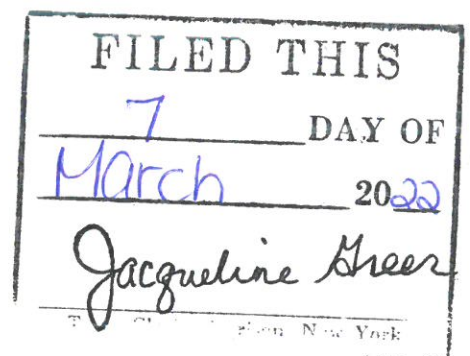 FILED THIS
7 DAY OF
March 2022
Jacqueline Greer
New York